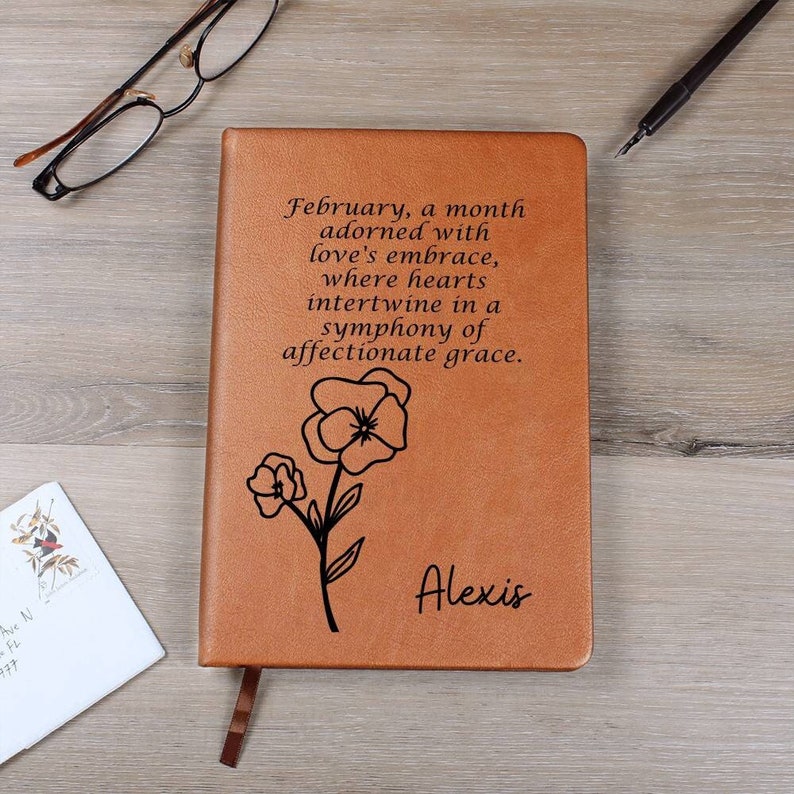 February, a month
adorned with
love's embrace,
where hearts
intertwine in a
symphony of
affectionate grace.
Alexis
Ave N
FL
977